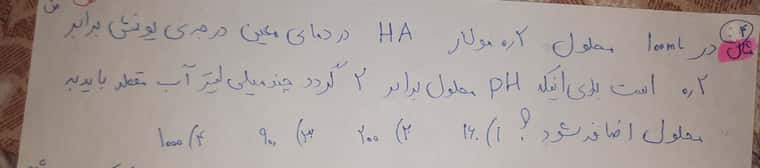 ۴
مثال: در ۱۰۰mL محلول ۰٫۲ مولار HA در دمای معین درجه‌ی یونش برابر
۰٫۲ است برای اینکه PH محلول برابر ۲ گردد چند میلی لیتر آب مقطر باید به
محلول اضافه شود؟ ۱) ۱۶۰ ۲) ۲۰۰ ۳) ۹۰۰ ۴) ۱۰۰۰